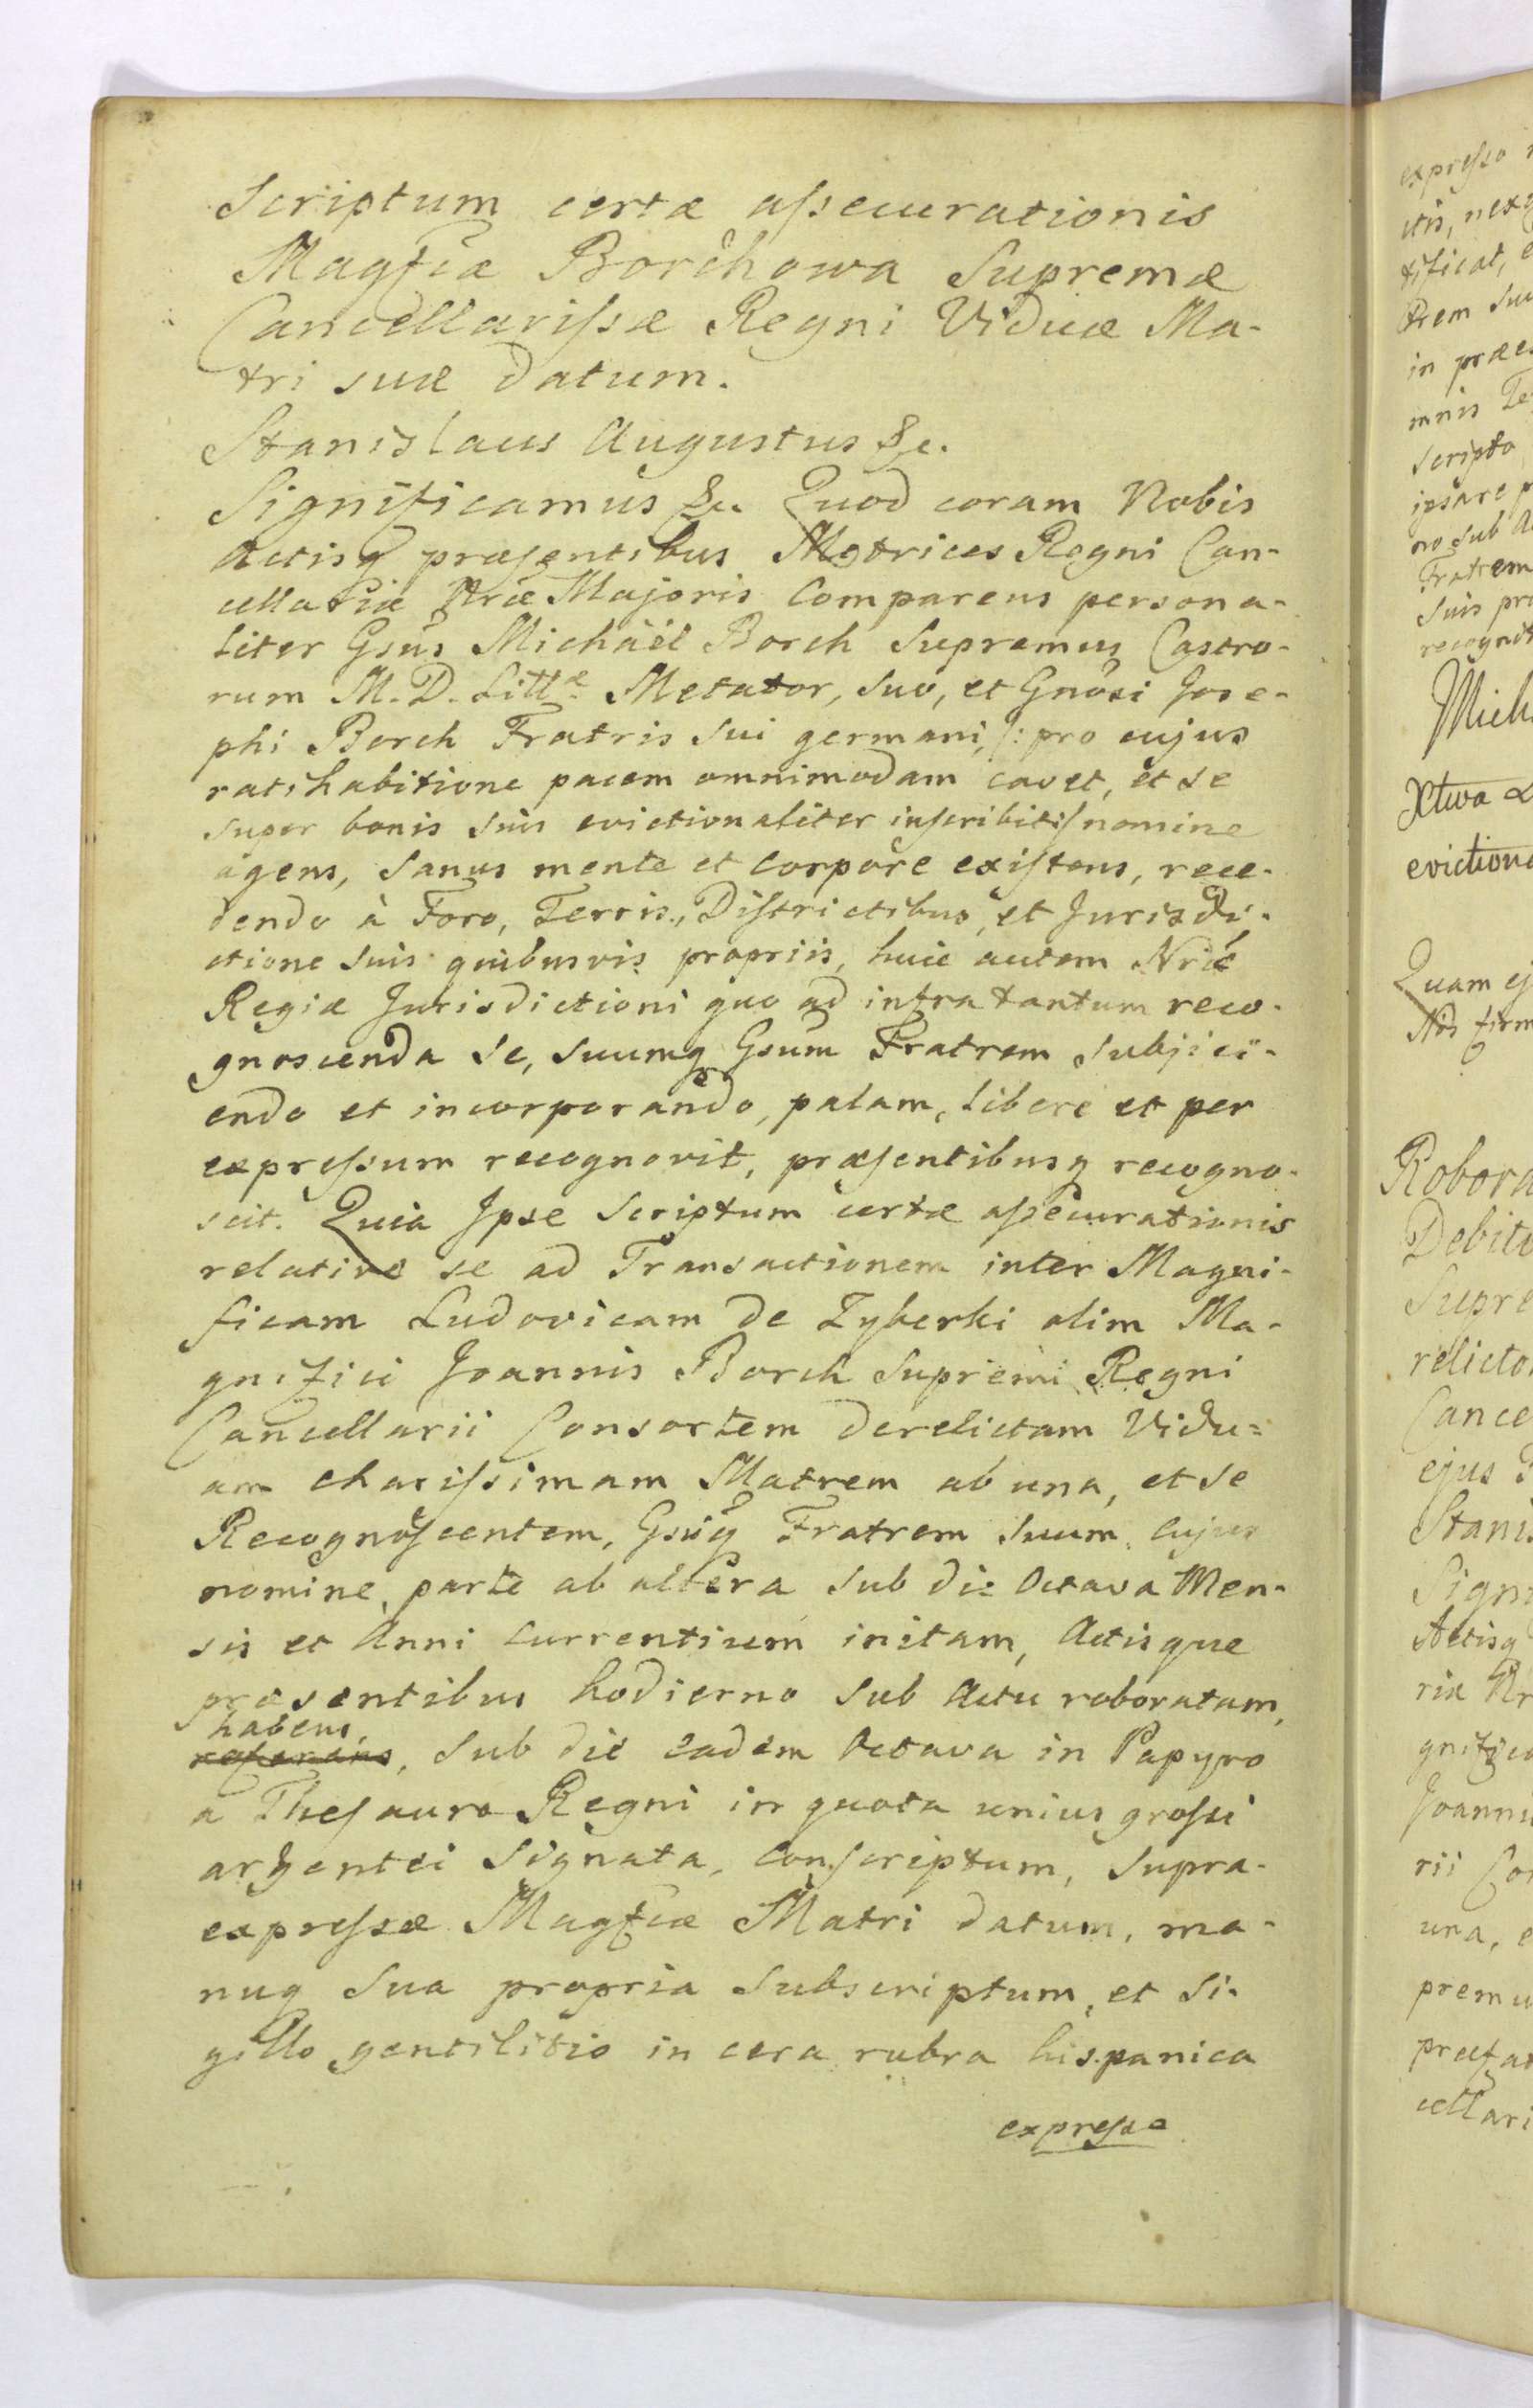 Scriptum certæ assecurationis
Magfcæ Borchowa Supremæ
Cancellarissæ Regni Viduæ Ma-
tri suæ datum.
Stanislaus Augustus &c.
Significamus &c. Quod coram Nobis
Actisq præsentibus Metrices Regni Can-
cellariæ Nræ Majoris Comparens persona-
liter Gsus Michäel Borch Supremus Castro-
rum M. D. Littæ Metator, suo, et Gnosi Jose-
phi Borch Fratris sui germani, /: pro cujus
ratihabitione pacem omnimodam cavet, et se
super bonis suis evictionaliter inscribit :/ nomine
agens, sanus mente et corpore existens, rece-
dendo à Foro, Terris, Districtibus, et Jurisdi-
ctione suis quibusvis propriis, huic autem Nræ
Regiæ Jurisdictioni quo ad infra tantum reco-
gnoscenda se, suumq Gsum Fratrem subjici-
endo et incorporando, palam, libere et per
expressum recognovit, præsentibusq recogno-
scit. Quia Ipse Scriptum certæ assecurationis
relative se ad Transactionem inter Magni-
ficam Ludovicam de Zyberki olim Ma-
gnifici Joannis Borch Supremi Regni
Cancellarii Consortem derelictam Vidu=
am charissimam Matrem ab una, et se
Recognoscentem, Gsuq Fratrem suum, cujus
nomine, parte ab altera sub die Octava Men-
sis et Anni currentium initam, Actisque
præsentibus hodierno sub Actu roboratam,
habens,
referens, sub die eadem Octava in Papyro
a Thesauro Regni in quota unius grossi
argentei signata, conscriptum, supra-
expressæ Magfcæ Matri datum, ma-
nuq sua propria subscriptum, et si-
gillo gentilitio in cera rubra hispanica
expresso
expresso
itis, nex
tificat, e
trem su
in præe
mnis Te
scripto
ipsare p
no sub A
Fratrem
suis pro
recognit
Mich
Xtwa L
eviction
Quam ej
Nos firm
Robora
Debit
Supre
relicto
Cance
ejus
Stanis
Signi
Actisq
riæ Nr
gnifico
Joannis
rii Co
una, e
premu
præfat
cellari